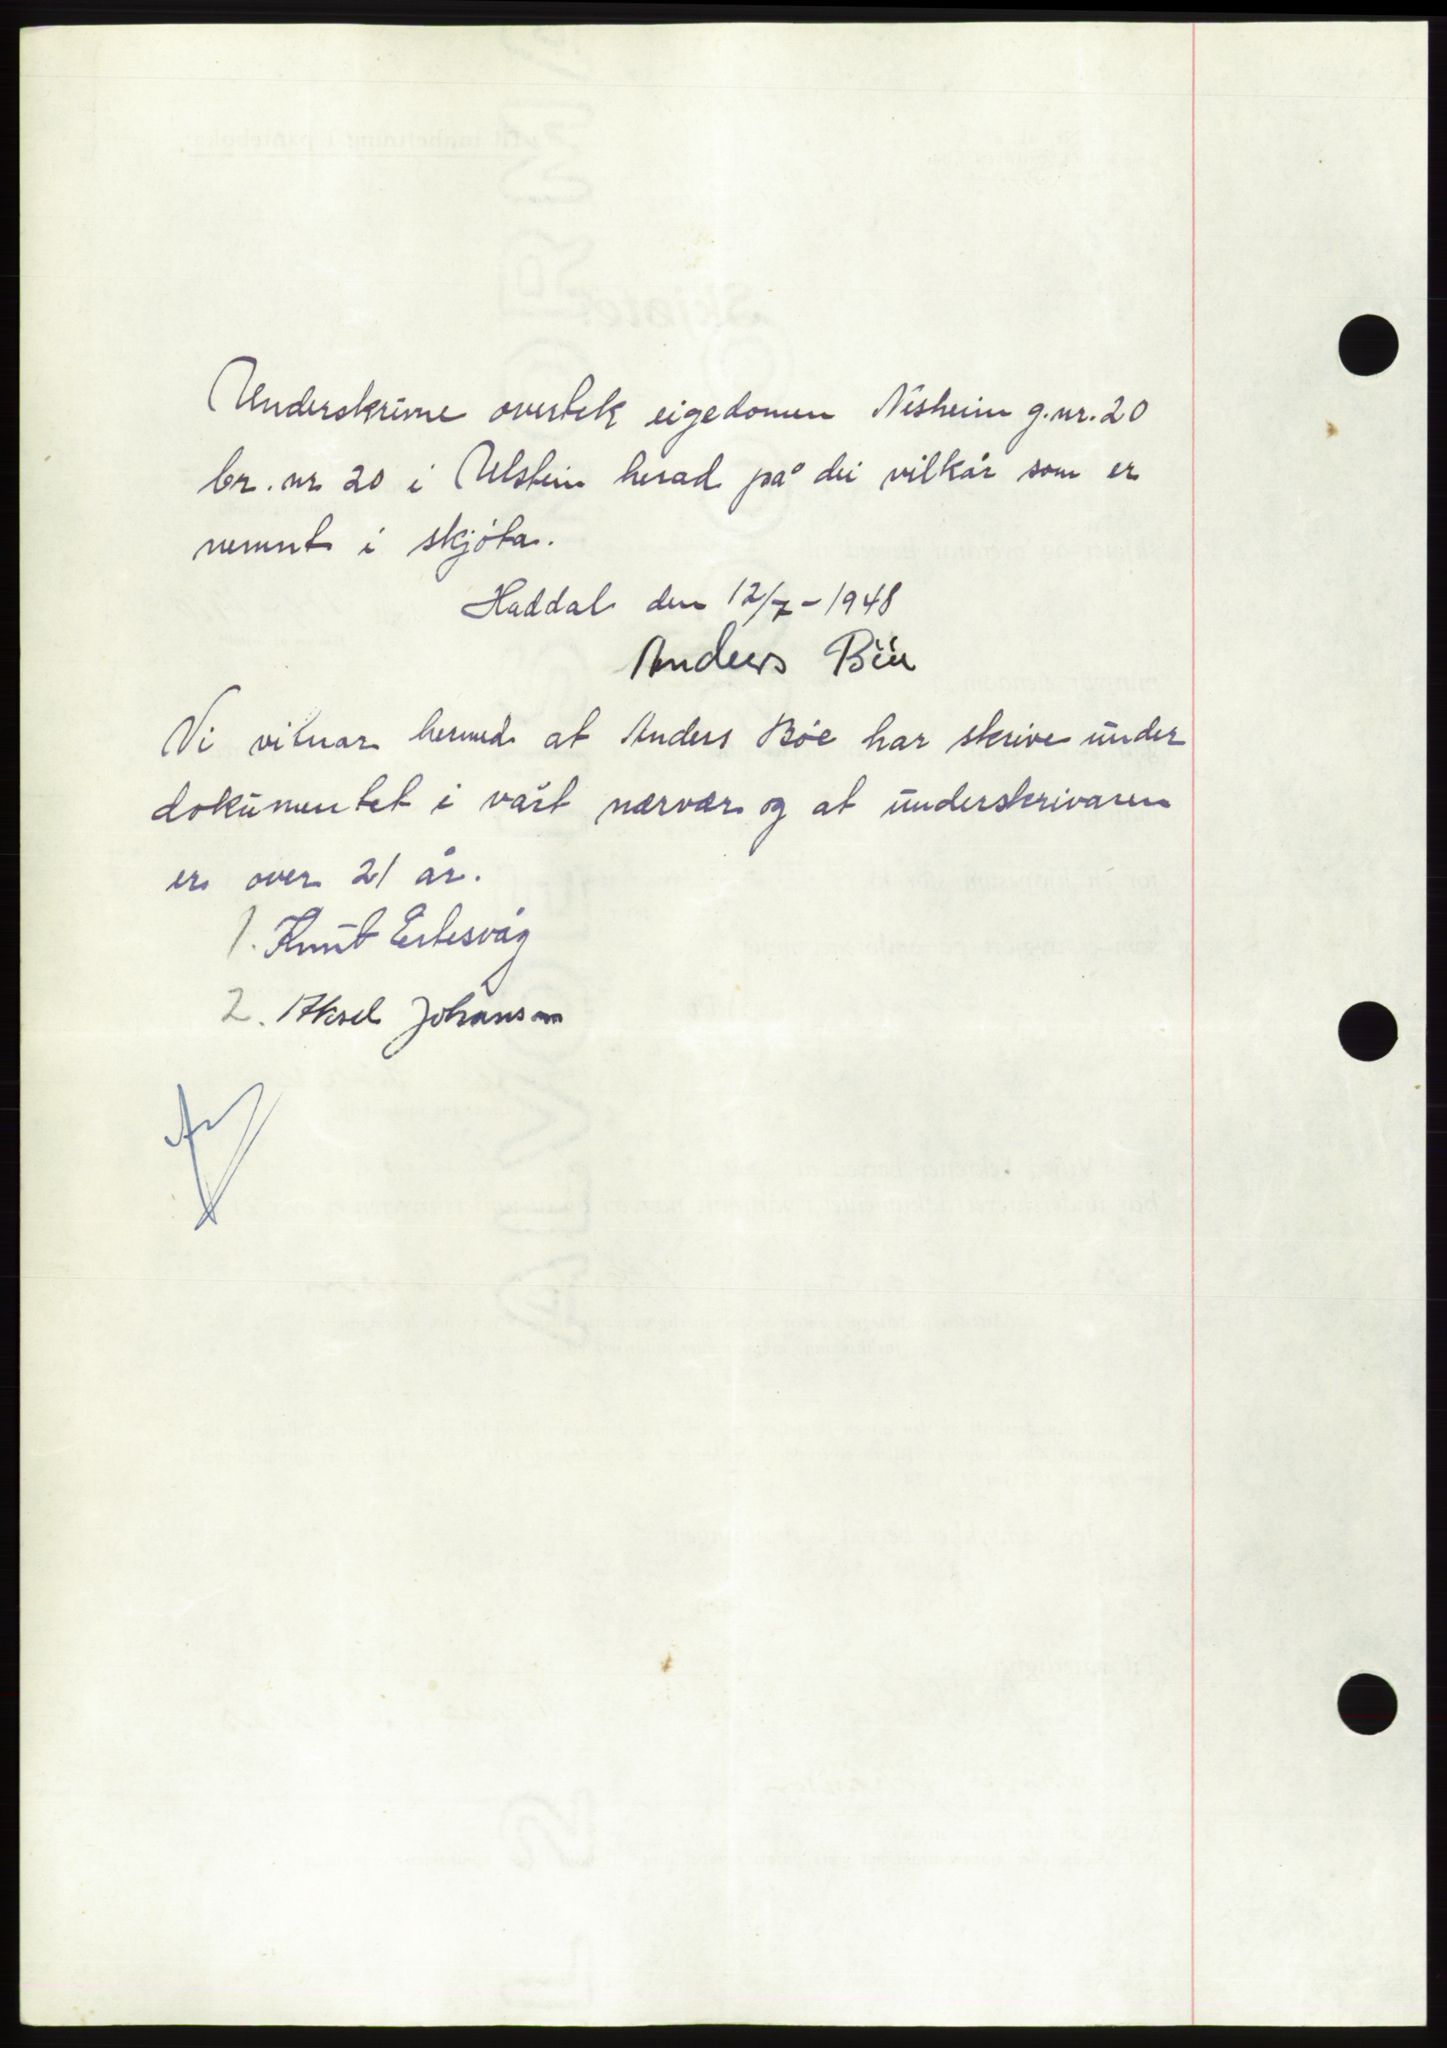 Underskrivne overtek eigedomen Nisheim g.nr. 20
br. nr 20 i Ulstein herad på dei vilkår som er
nemnt i skjöta.
Haddal den 12/7 - 1948
Anders Böe
Vi vitnar hermed at Anders Böe har skrive under
dokumentet i vårt nærvær og at underskrivaren
er over 21 år.
1. Knut Ertesvåg
2. Aksel Johanson